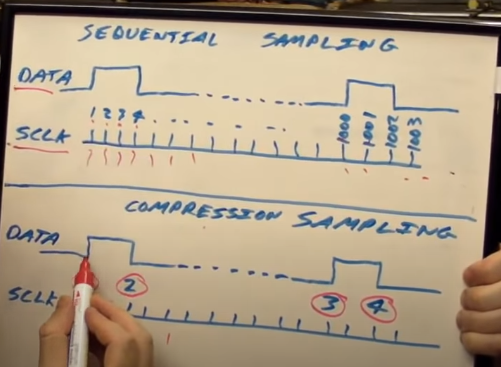 SEQUENTIAL SAMPLING
DATA
1 2 3 4 1000 1001 1002 1003
SCLK
COMPRESSION SAMPLING
DATA
2 3 4
SCLK